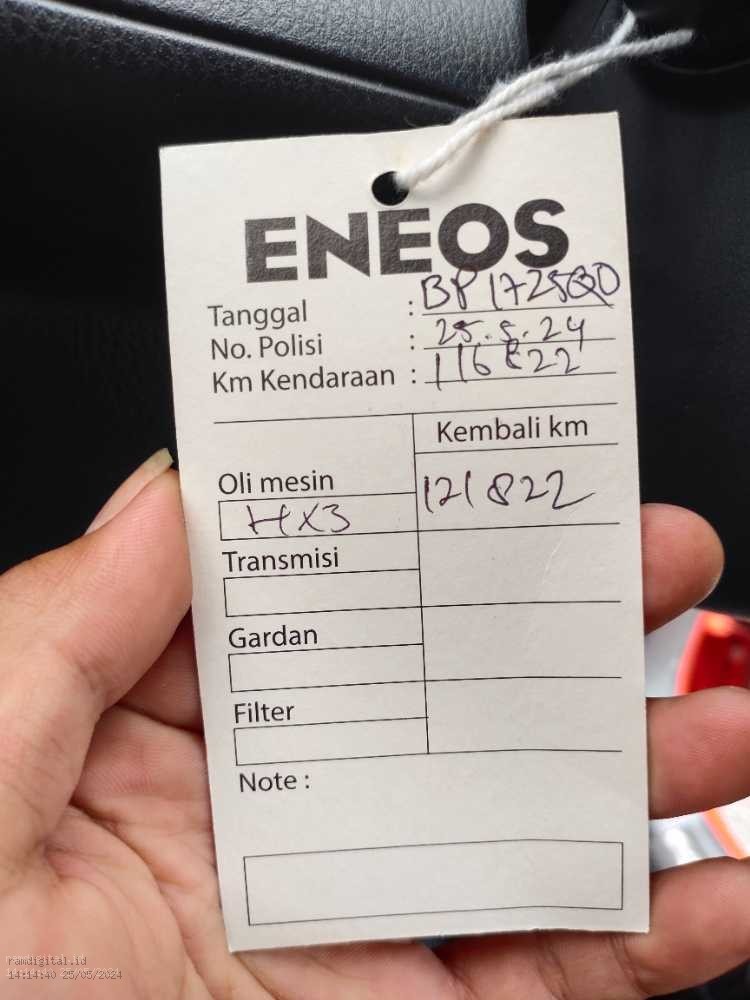 ENEOS
Tanggal : BP 1725 QO
No. Polisi : 25.5.24
Km Kendaraan : 116822
Kembali km
Oli mesin
HX3 121822
Transmisi
Gardan
Filter
Note :
ramdigital.id
14:14:40 25/05/2024